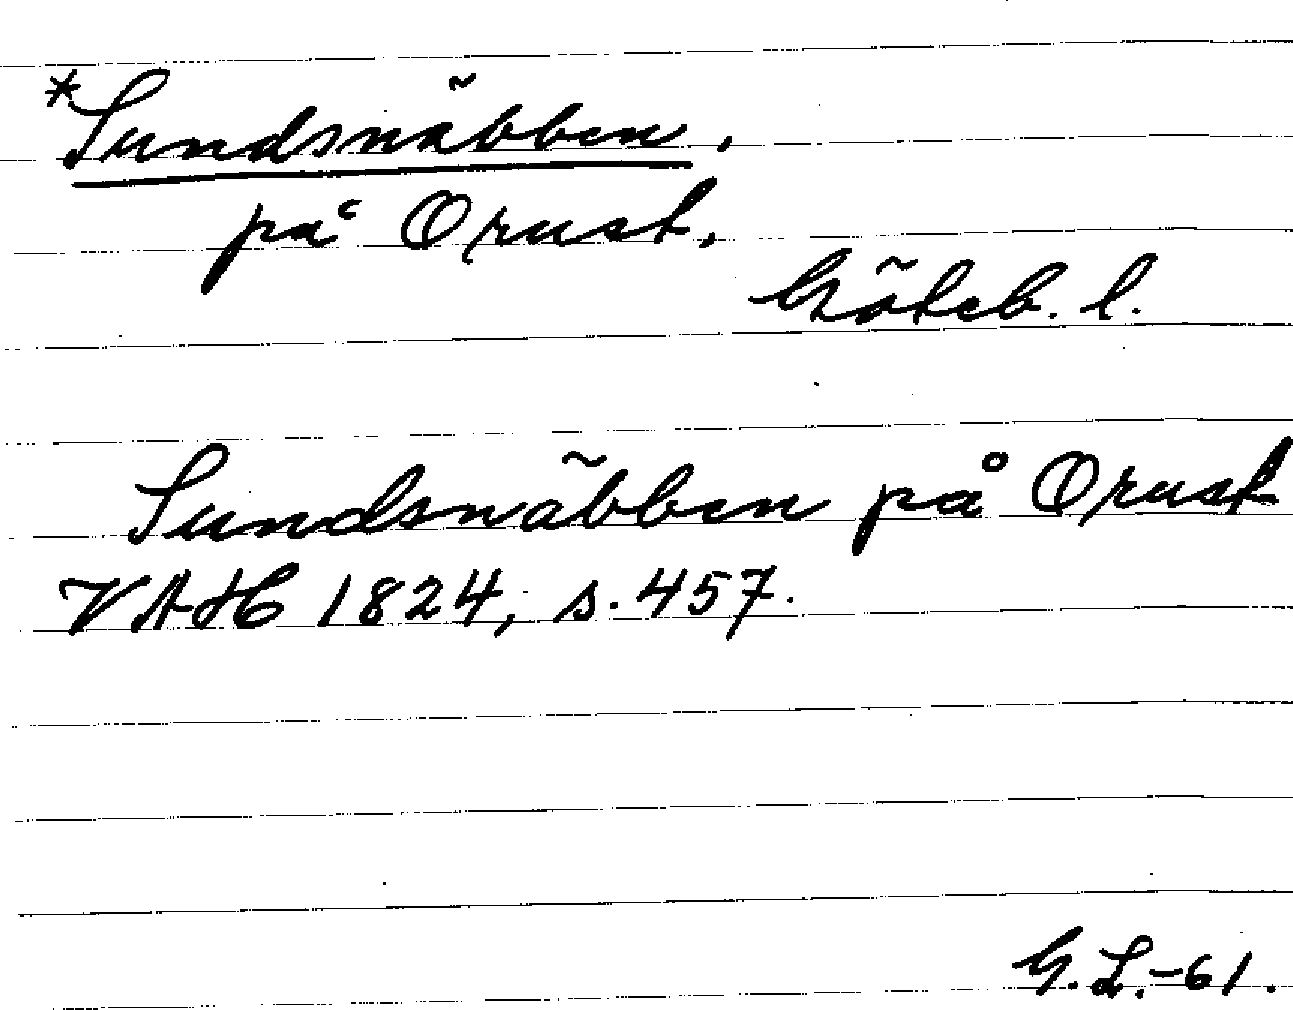 *Sundsnäbben.
på Orust.
Göteb. l.
Sundsnäbben på Orust
VAH 1824, s. 457.
G. L. -61.